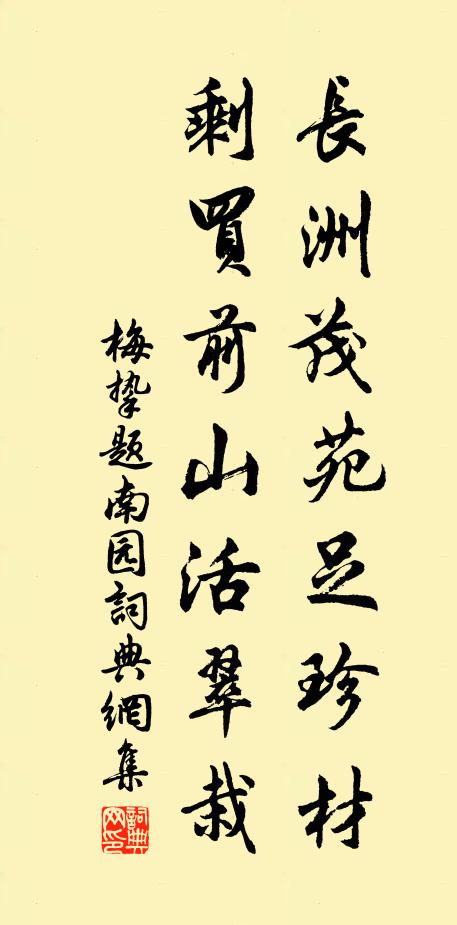 長洲茂苑足珍材
剩買前山活翠栽
梅挚题南园詞典網集
詞典網印